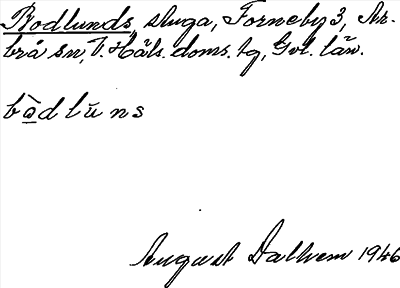 Bodlunds, stuga, Forneby 3, Ar-
brå sn, V. Häls. doms. tg, Gvl. län.
bòdlūns
August Dalhem 1946